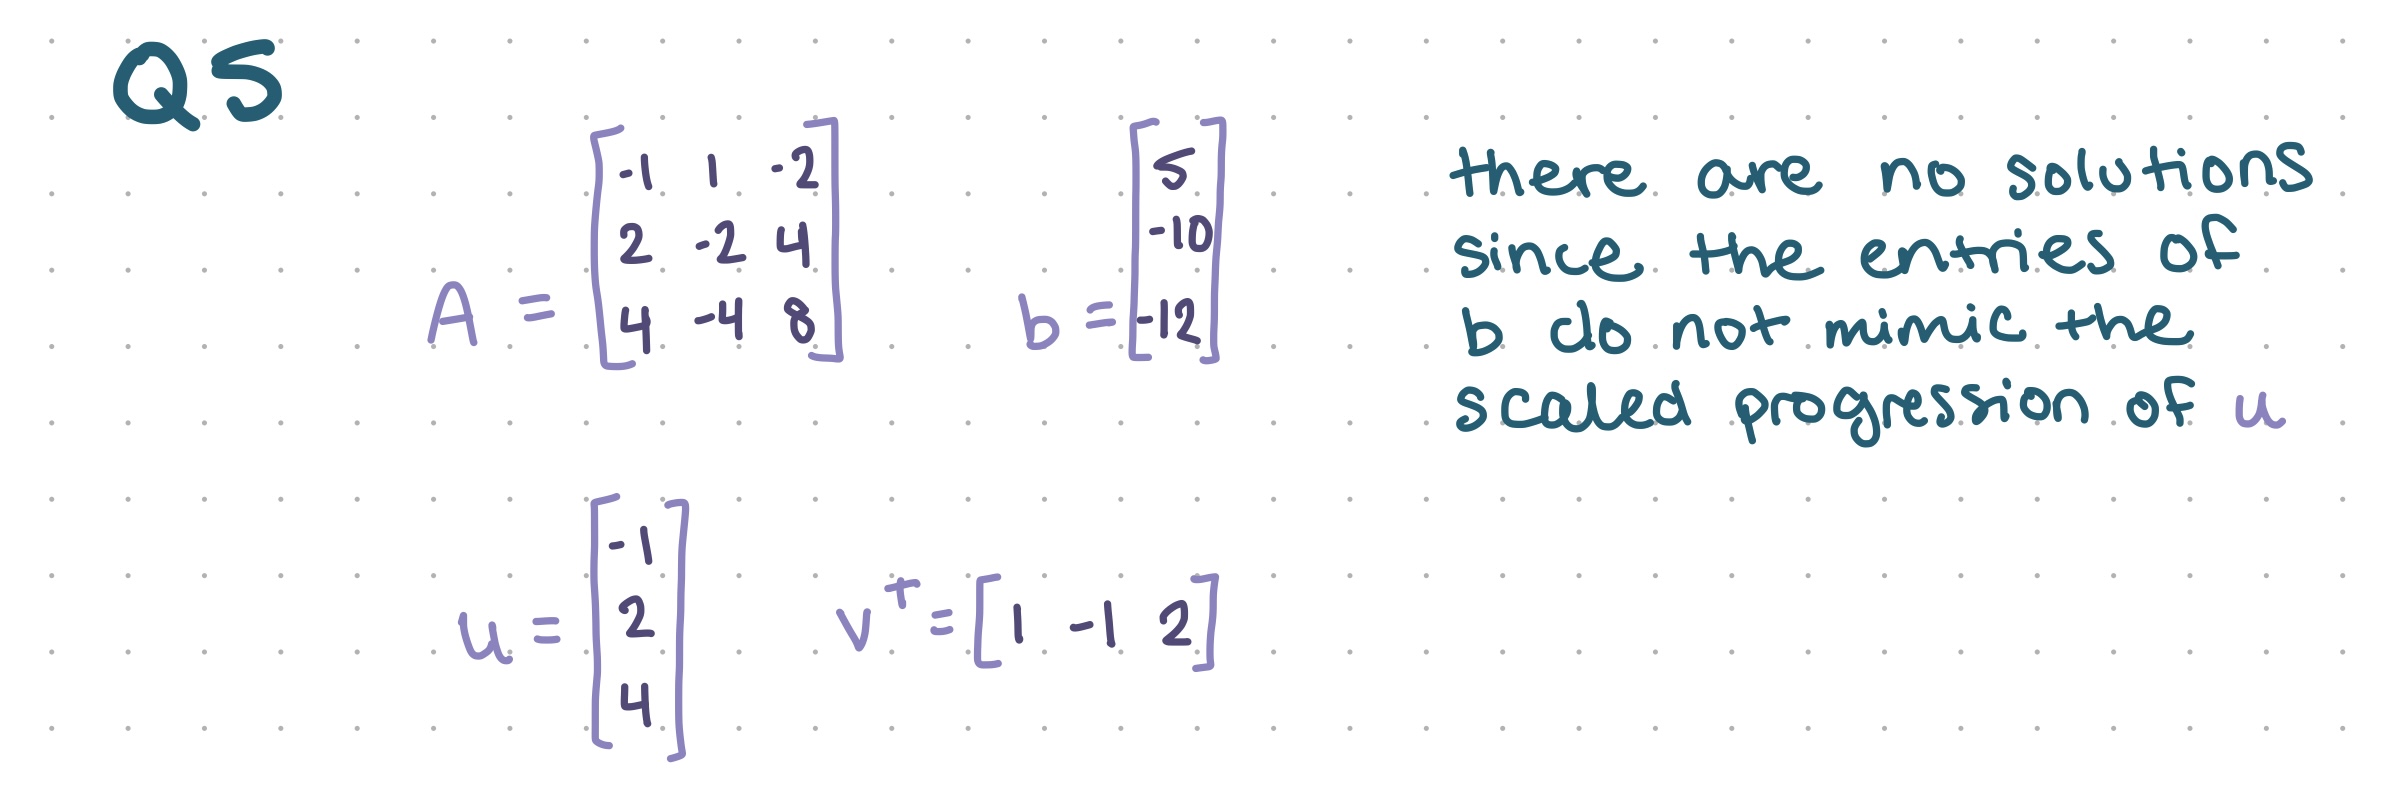 Q5
A = [-1 1 -2
2 -2 4
4 -4 8]
b = [5
-10
-12]
there are no solutions
since the entries of
b do not mimic the
scaled progression of u
u = [-1
2
4]
v^T = [1 -1 2]